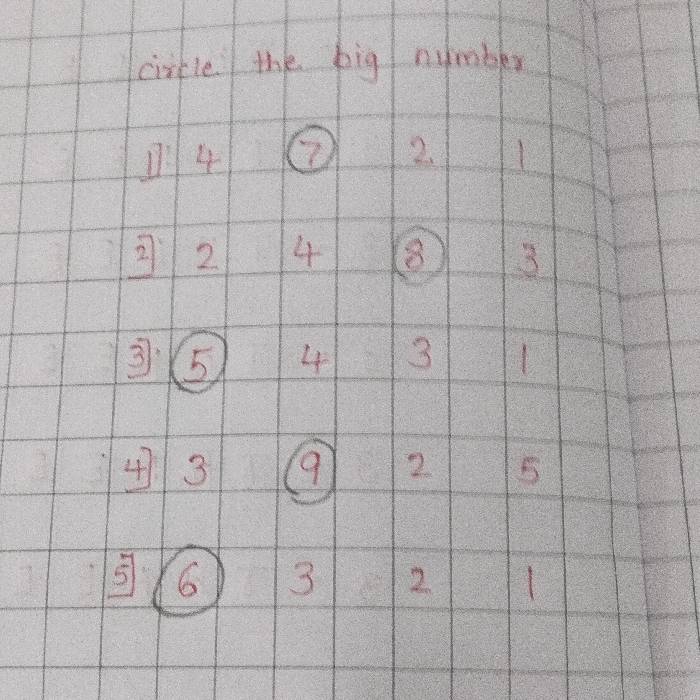 circle the big number
1] 4 7 2 1
2] 2 4 8 3
3] 5 4 3 1
4] 3 9 2 5
5] 6 3 2 1